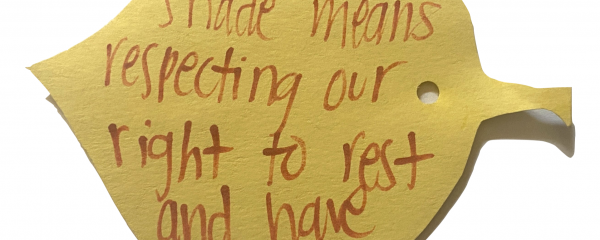 shade means
respecting our
right to rest
and have